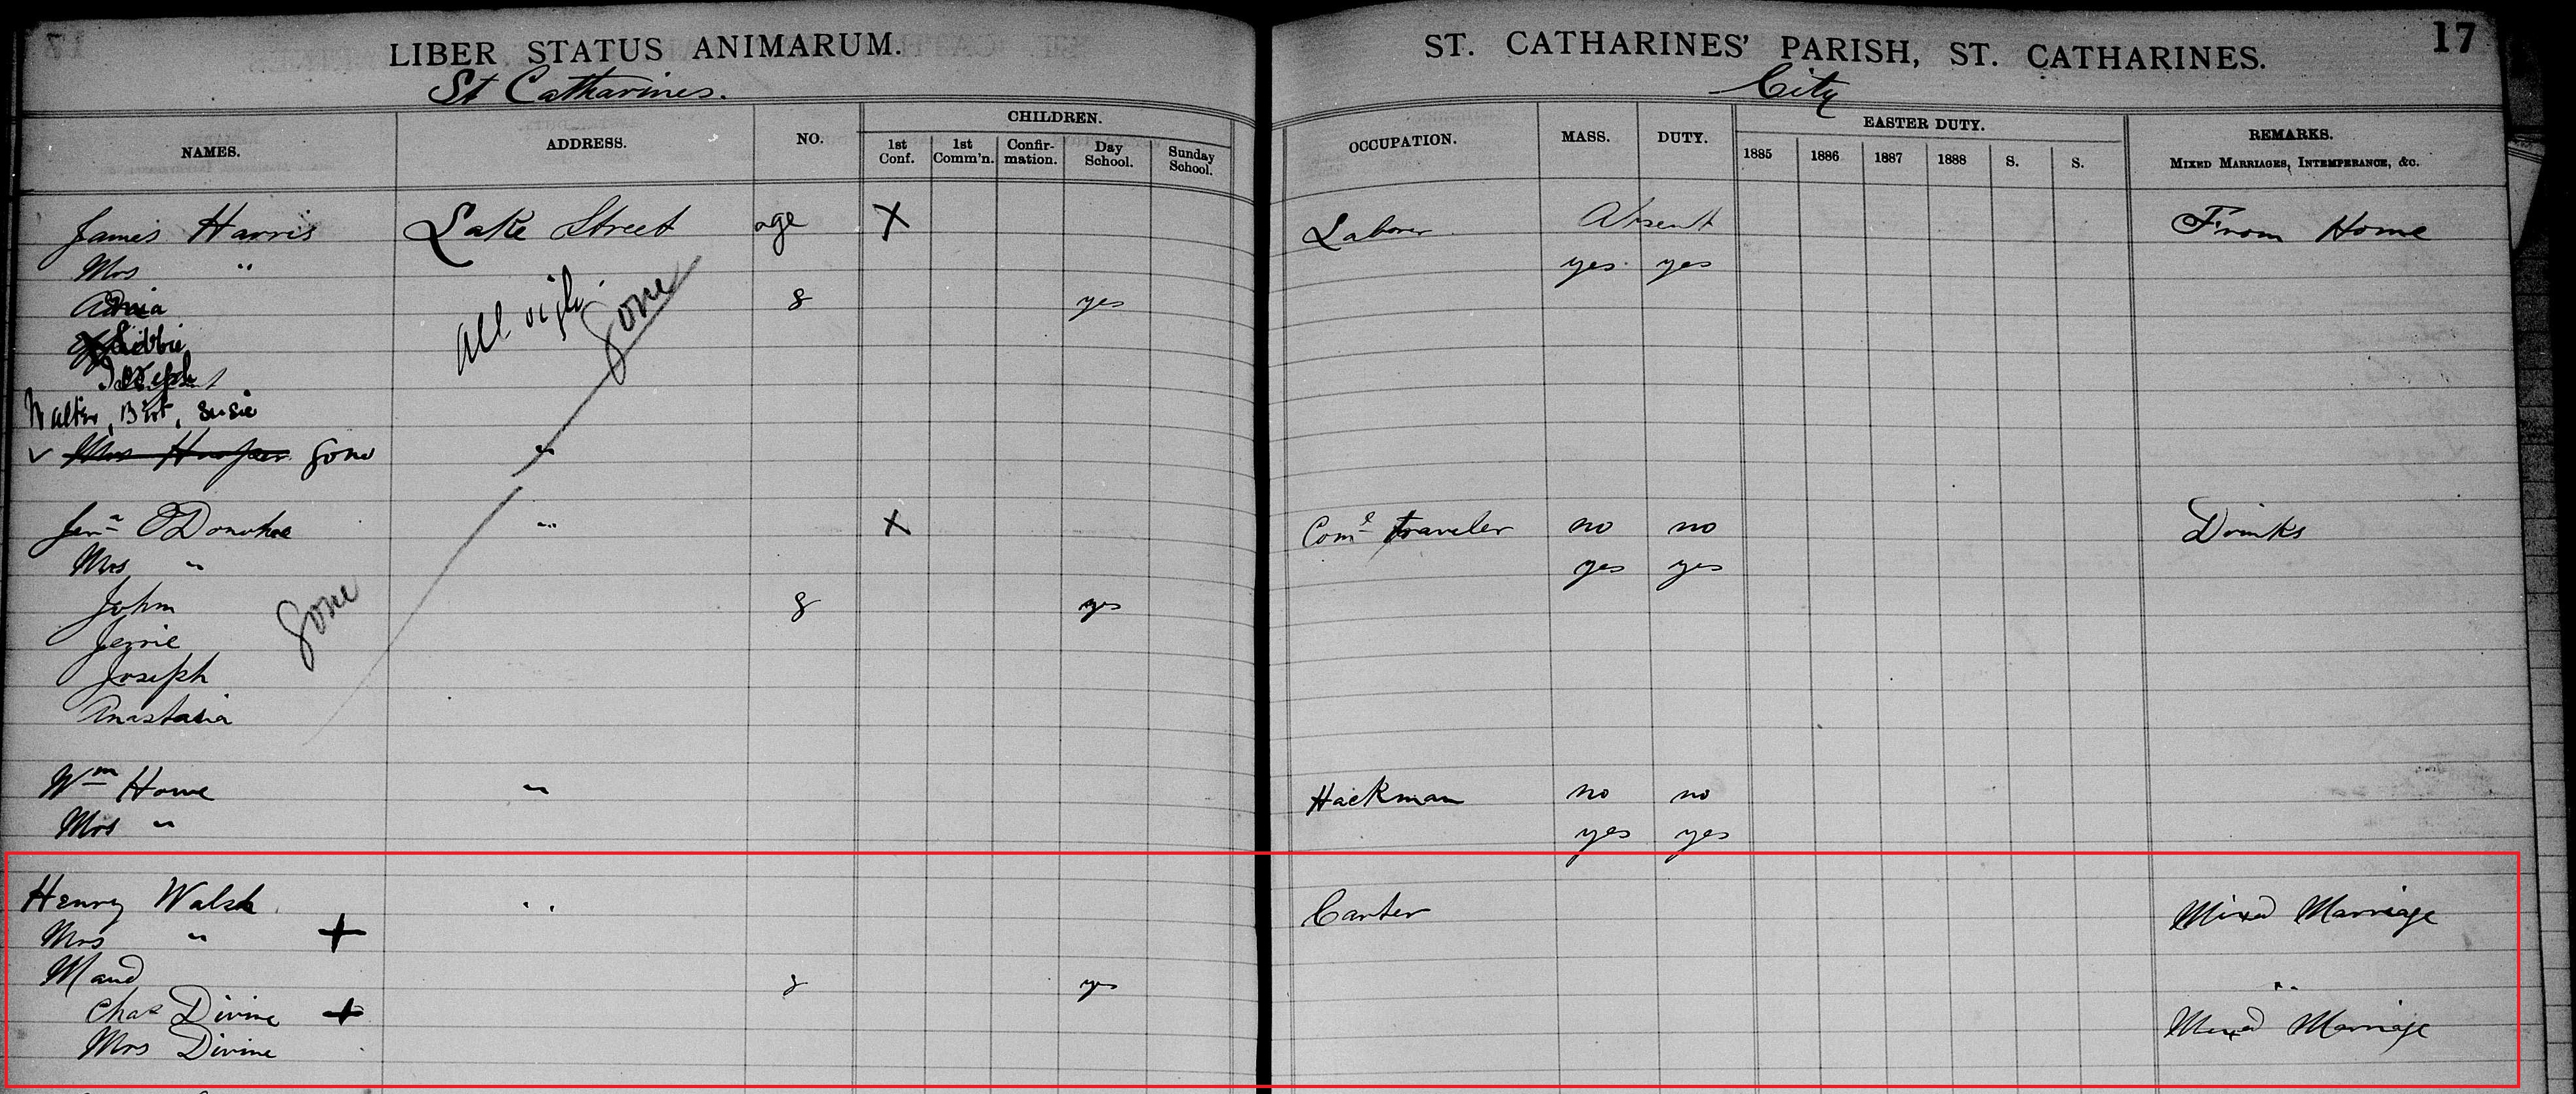 17
LIBER STATUS ANIMARUM. ST. CATHARINES' PARISH, ST. CATHARINES. 17
St Catharines. City
NAMES. ADDRESS. NO. CHILDREN. OCCUPATION. MASS. DUTY. EASTER DUTY. REMARKS.
1st Conf. 1st Comm'n. Confir-mation. Day School. Sunday School. 1885 1886 1887 1888 S. S. MIXED MARRIAGES, INTEMPERANCE, &C.
James Harris Lake Street age X Laborer Absent From Home
Mrs " yes yes
8 yes
All right gone
Libbie
Joseph
Walter, Bert, Susie
✓ Mrs gone "
O'Donohoe " X Coml traveler no no Drinks
Mrs " yes yes
John 8 yes
gone
Jerrie
Joseph
Anastasia
Wm Howe " Hackman no no
Mrs " yes yes
Henry Walsh " Carter Mixed Marriage
Mrs " +
Maud 8 yes "
Chas Divine + Mixed Marriage
Mrs Divine